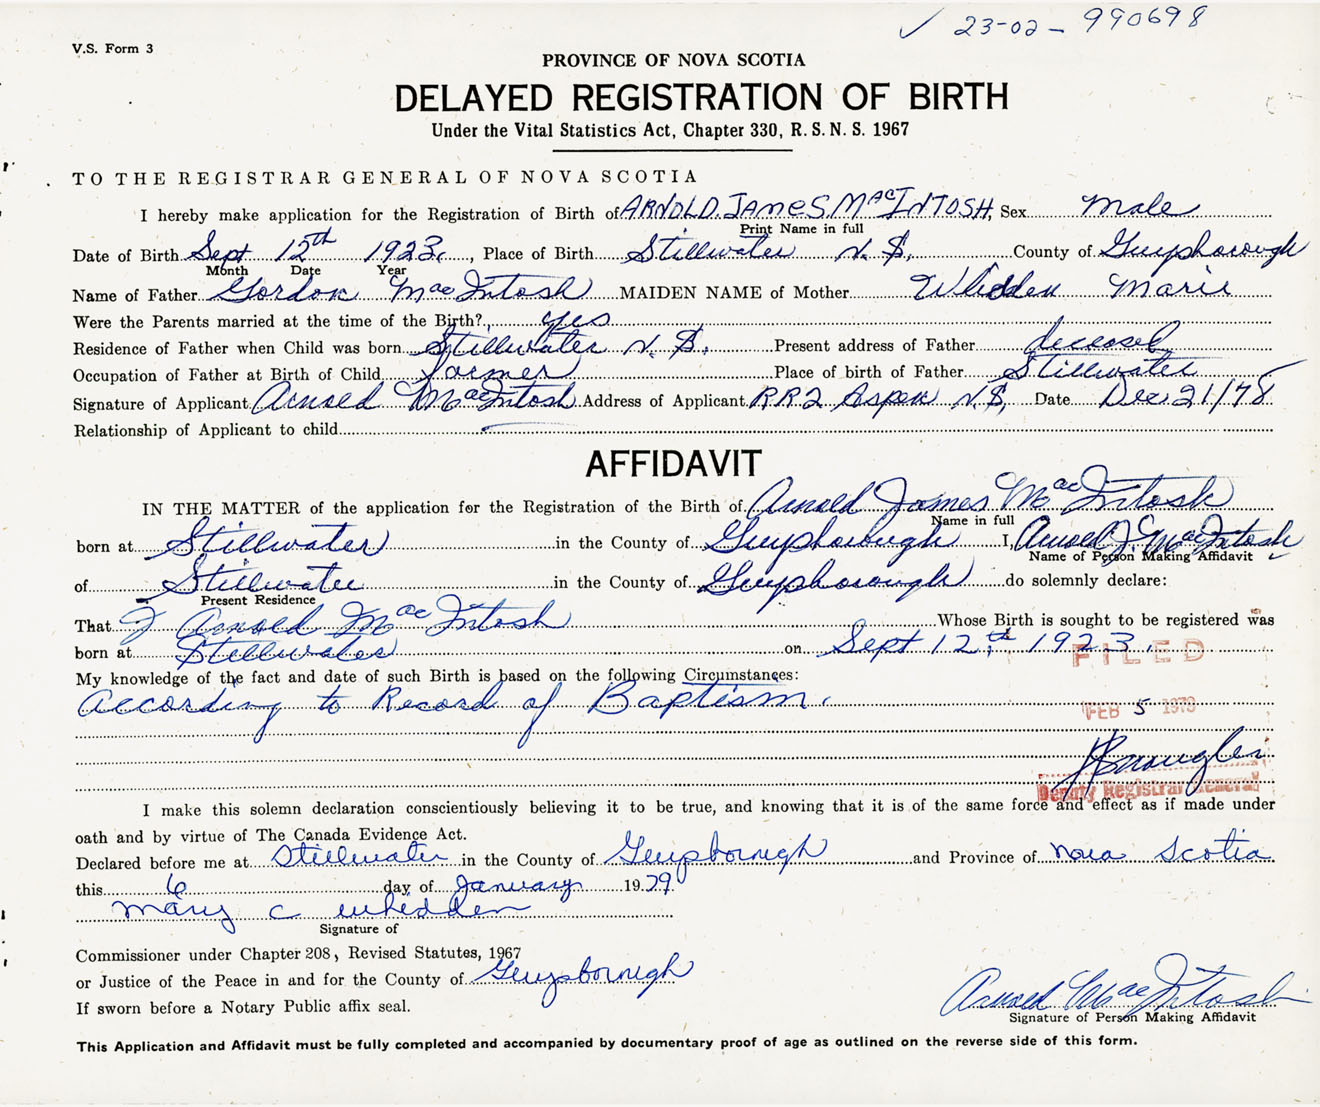 ✓ 23-02-990698
V.S. Form 3
PROVINCE OF NOVA SCOTIA
DELAYED REGISTRATION OF BIRTH
Under the Vital Statistics Act, Chapter 330, R.S.N.S. 1967
TO THE REGISTRAR GENERAL OF NOVA SCOTIA
I hereby make application for the Registration of Birth of ARNOLD JAMES MacINTOSH, Sex Male
Print Name in full
Date of Birth Sept 12th 1923, Place of Birth Stillwater N.S. County of Guysborough
Month Date Year
Name of Father Gordon MacIntosh MAIDEN NAME of Mother Whidden Marie
Were the Parents married at the time of the Birth?, yes
Residence of Father when Child was born Stillwater N.S. Present address of Father deceased
Occupation of Father at Birth of Child farmer Place of birth of Father Stillwater
Signature of Applicant Arnold MacIntosh Address of Applicant RR2 Aspen N.S. Date Dec 21/78
Relationship of Applicant to child
AFFIDAVIT
IN THE MATTER of the application for the Registration of the Birth of Arnold James MacIntosh
Name in full
born at Stillwater in the County of Guysborough I, Arnold J. MacIntosh
Name of Person Making Affidavit
of Stillwater in the County of Guysborough do solemnly declare:
Present Residence
That I Arnold MacIntosh Whose Birth is sought to be registered was
born at Stillwater on Sept 12th 1923.
FILED
My knowledge of the fact and date of such Birth is based on the following Circumstances:
According to Record of Baptism.
FEB 5 1979
Deputy Registrar General
I make this solemn declaration conscientiously believing it to be true, and knowing that it is of the same force and effect as if made under
oath and by virtue of The Canada Evidence Act.
Declared before me at Stillwater in the County of Guysborough and Province of Nova Scotia
this 6 day of January 1979
Mary C Whidden
Signature of
Commissioner under Chapter 208, Revised Statutes, 1967
or Justice of the Peace in and for the County of Guysborough
If sworn before a Notary Public affix seal.
Arnold MacIntosh
Signature of Person Making Affidavit
This Application and Affidavit must be fully completed and accompanied by documentary proof of age as outlined on the reverse side of this form.